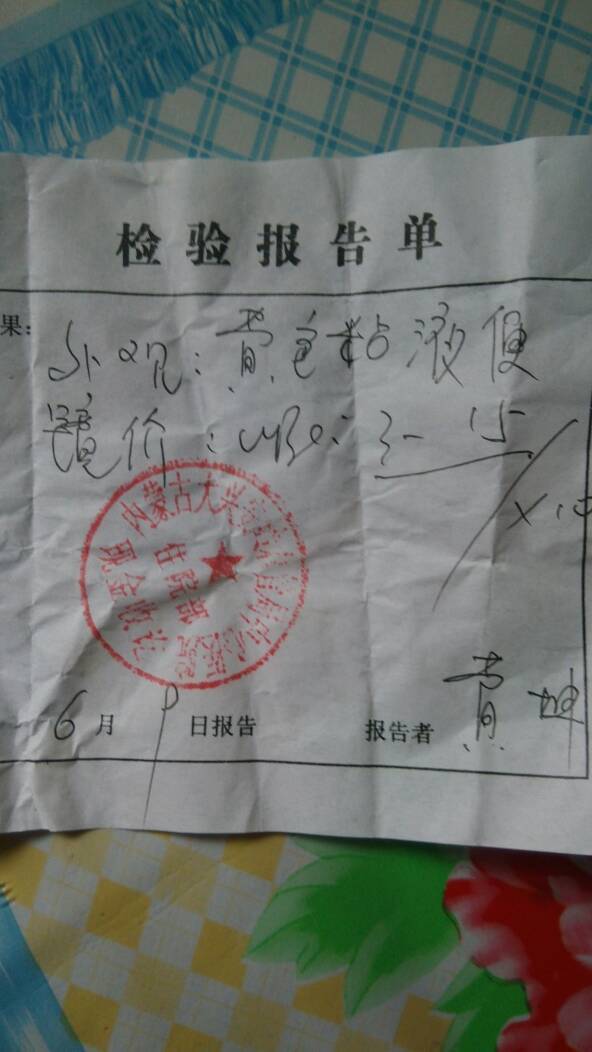 检验报告单
果:
外观:黄色粘液便
镜检:WBC:3-15/×10
内蒙古大兴安岭
现金收讫
住院部
6月9日报告 报告者 黄坤